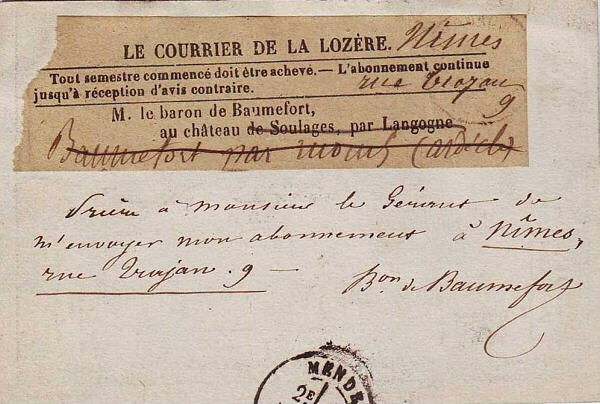 LE COURRIER DE LA LOZÈRE. Nîmes
Tout semestre commencé doit être achevé. — L'abonnement continue
jusqu'à réception d'avis contraire. rue Trajan
9
M. le baron de Baumefort,
au château de Soulages, par Langogne
Baumefort par (ardèche)
Prière à monsieur le Gérant de
m'envoyer mon abonnement à Nîmes,
rue Trajan. 9 — Bon de Baumefort
MENDE
2E